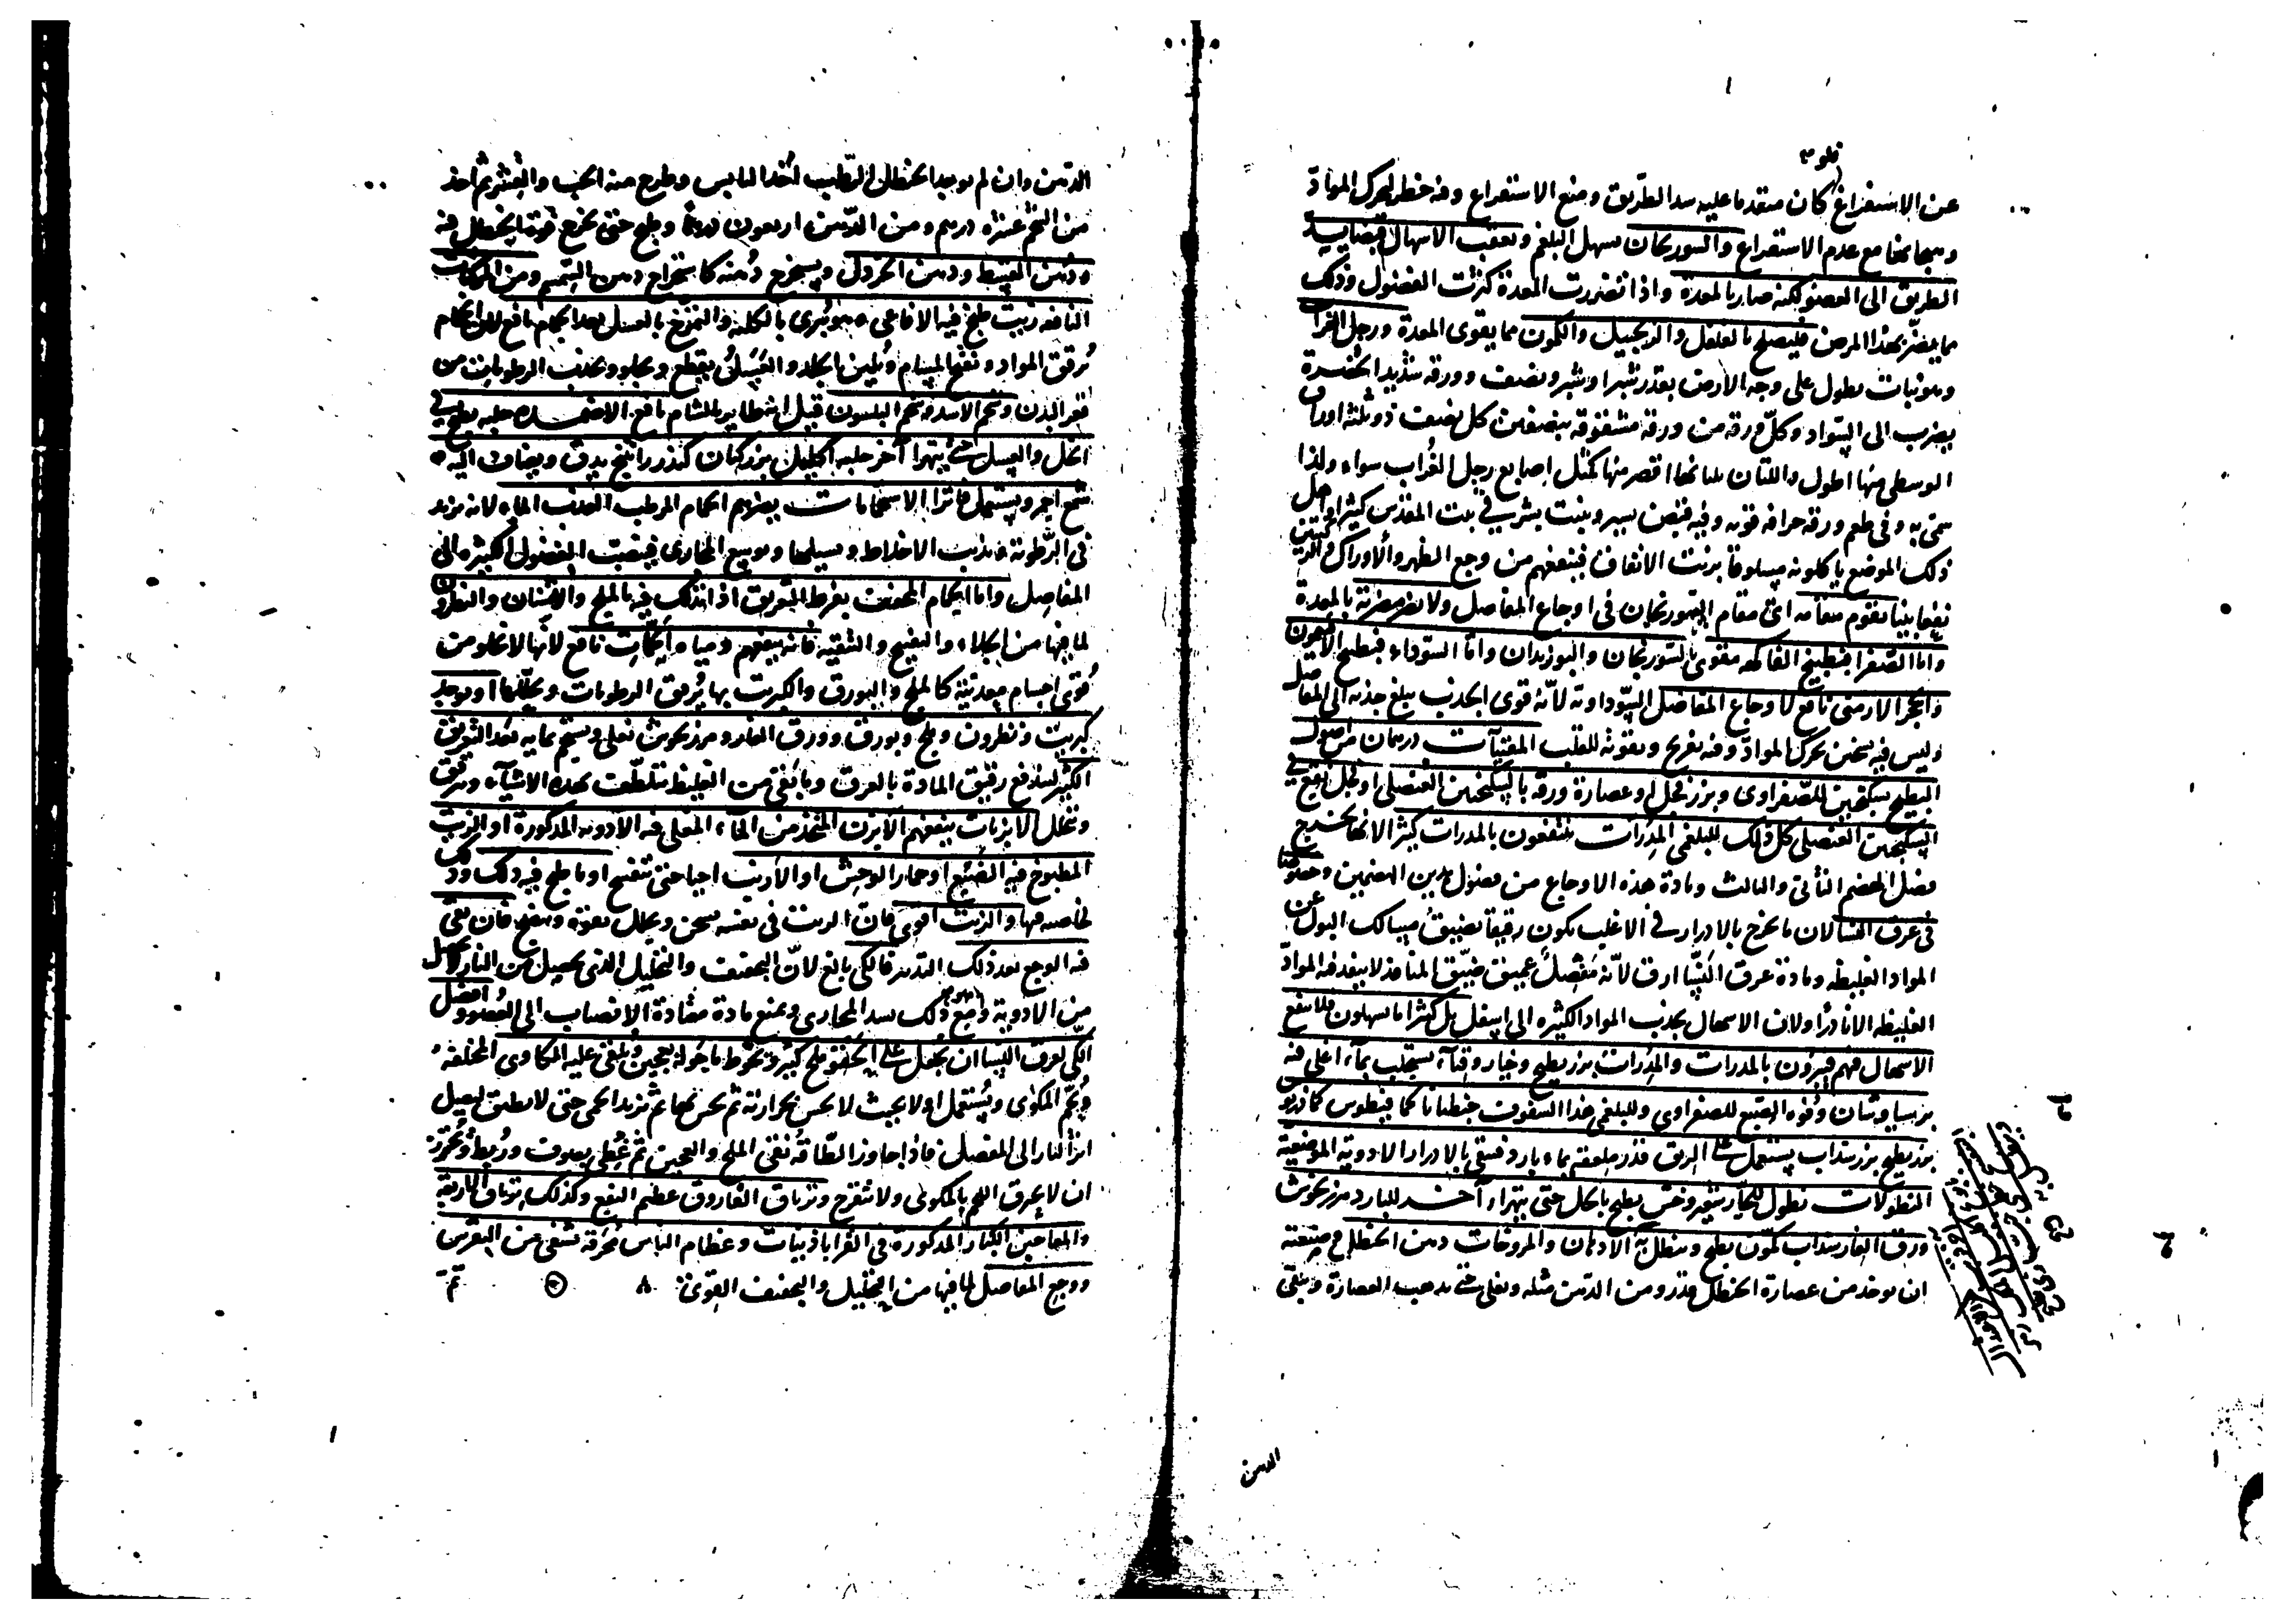 فلو
عن الاستفراغ كان متقدما عليه سد الطريق ومنع الاستفراغ وفيه خطر لتحرك المواد
وهيجانها مع عدم الاستفراغ والسورنجان يسهل البلغم ويعقب الاسهال قبضا يسد
الطريق الى العضو لكنه ضار بالمعدة واذا تضررت المعدة كثرت الفضول وذلك
مما يضر بهذا المرض فليصلح بالفلفل والزنجبيل والكمون مما يقوى المعدة ورجل الغراب
وهو نبات يطول على وجه الارض بقدر شبر او شبر ونصف وورقه شديد الخضرة
يضرب الى السواد وكل ورقة من ورقه مشقوقة بنصفين كل نصف ذو ثلثة اوراق
الوسطى منها اطول واللتان يليانها اقصر منها كمثل اصابع رجل الغراب سواء ولذا
سمى به وفى طعم ورقه حرافة قوية وفيه قبض يسير وينبت بشرقى بيت المقدس كثيرا واهل
ذلك الموضع ياكلونه مسلوقا بزيت الانفاق فينفعهم من وجع الظهر والاوراك والركبتين
نفعا بينا يقوم مقامه اى مقام السورنجان فى اوجاع المفاصل ولا يظهر مضرته بالمعدة
واما الصفرا فبطبيخ الفاكهة مقوى بالسورنجان والبوزيدان واما السوداء فبطبيخ الافتيمون
والحجر الارمنى نافع لاوجاع المفاصل السوداوية لانه قوى الجذب يبلغ جذبه الى المفاصل
وليس فيه تسخين يحرك المواد وفيه تفريح وتقوية للقلب المقيئات درهمان من اصول
البطيخ بسكنجبين للصفراوى وبزر فجل او عصارة ورقه بالسكنجبين العنصلى او فجل نقع فى
السكنجبين العنصلى كل ذلك للبلغمى المدرات ينتفعون بالمدرات كثيرا لانها تخرج
فضل الهضم الثانى والثالث ومادة هذه الاوجاع من فضول هذين الهضمين وخصوصا
فى عرق النسا لان ما يخرج بالادرار فى الاغلب يكون رقيقا لضيق مسالك البول عن
المواد الغليظة ومادة عرق النسا ارق لانه مفصل عميق ضيق المنافذ لا ينفذ فيه المواد
الغليظة الا نادرا ولان الاسهال يجذب المواد الكثيرة الى اسفل بل كثيرا ما يسهلون فلا ينفع
الاسهال فيهم فيبرؤن بالمدرات والمدرات بزر بطيخ وخيار وقثاء يستحلب بماء اغلى فيه
برسياوشان وفوه الصبغ للصفراوى وللبلغمى هذا السفوف جنطيانا كمافيطوس كمادريوس
بزر بطيخ بزر سذاب يستعمل على الريق قدر ملعقة بماء بارد فتنقى بالادرار الادوية الموضعية
النطولات نطول للحار شعير وخس يطبخ بالخل حتى يتهرا آخر للبارد مرزنجوش
ورق الغار سذاب كمون يطبخ وينطل به الادهان والمروخات دهن الحنظل صنعته
ان يوخذ من عصارة الحنظل قدر ومن الدهن مثله ويغلى حتى يذهب العصارة ويبقى
الدهن
الدهن وان لم يوجد الحنظل الرطب اخذ اليابس وطرح منه الحب والقشر ثم اخذ
من الشحم عشرة دراهم ومن الدهن اربعون درهما وطبخ حتى يخرج قوة الحنظل فيه
ودهن القسط ودهن الخردل ويستخرج دهنه كاستخراج دهن السمسم ومن المركبات
النافعة زيت طبخ فيه الافاعى وهو يبرى بالكلية والتمرخ بالعسل بعد الحمام نافع لان الحمام
يرقق المواد ويفتح المسام ويلين الجلد والعسل يقطع ويجلو ويجذب الرطوبات من
قعر البدن وشحم الاسد وشحم البلسون قيل انها طاير بالشام نافع الاضمدة حلبه يطبخ فى
الخل والعسل حتى يتهرا آخر حلبه اكليل بزر كتان كندر راتينج يدق ويضاف اليه
شمع احمر ويستعمل فاترا الاستحمامات يضرهم الحمام المرطب العذب الماء لانه يزيد
فى الرطوبة ويذيب الاخلاط ويسيلها ويوسع المجارى فينصب الفضول الكثيرة الى
المفاصل واما الحمام المجفف بفرط التعريق اذا تدلك فيه بالملح والاشنان والنطرون
لما فيها من الجلاء والتفتيح والتنقية فانه ينفعهم ومياه الحمات نافع لانها لا تخلو من
قوى اجسام معدنية كالملح والبورق والكبريت بها يرقق الرطوبات ويحللها او يوخذ
كبريت ونطرون وملح وبورق وورق الغار ومرزنجوش تغلى ويستحم بمايه بعد التعريق
الكثير ليندفع رقيق المادة بالعرق وما بقى من الغليظ يتلطف بهذه الاشياء ويرقق
ويتحلل الابزنات ينفعهم الابزن المتخذ من الماء المغلى فيه الادوية المذكورة او الزيت
المطبوخ فيه الضبع او حمار الوحش او الارنب احيا حتى تتفسخ او ما طبخ فيه ذلك وذلك
لخاصية فيها والزيت اقوى فان الزيت فى نفسه يسخن ويحلل بقوة وينضج فان بقى
فيه الوجع بعد ذلك التدبير فالكى بالغ لان التجفيف والتحليل الذى يحصل من النار لا يحصل
من الادوية ومع ذلك يسد المجارى ويمنع مادة معتادة الانصباب الى العضو وافضل
الكى لعرق النسا ان يجعل على الحق ملح كثير ويحوط ما حوله بعجين ويلقى عليه المكاوى المختلفة
ويحم المكوى ويستعمل اولا بحيث لا يحس بحرارته ثم يحس بها ثم يزيد الحمى حتى لا يطيق ليصل
اثر النار الى المفصل فاذا جاوز الطاقة نقى الملح والعجين ثم غطى بصوف وربط ويحترز
ان لا يحرق اللحم بالمكوى ولا يتقرح وترياق الفاروق عظيم النفع وكذلك ترياق الاربعة
والمعاجين الكبار المذكورة فى القراباذينات وعظام الناس محرقة تشفى من النقرس
ووجع المفاصل لما فيها من التحليل والتجفيف القوى تم